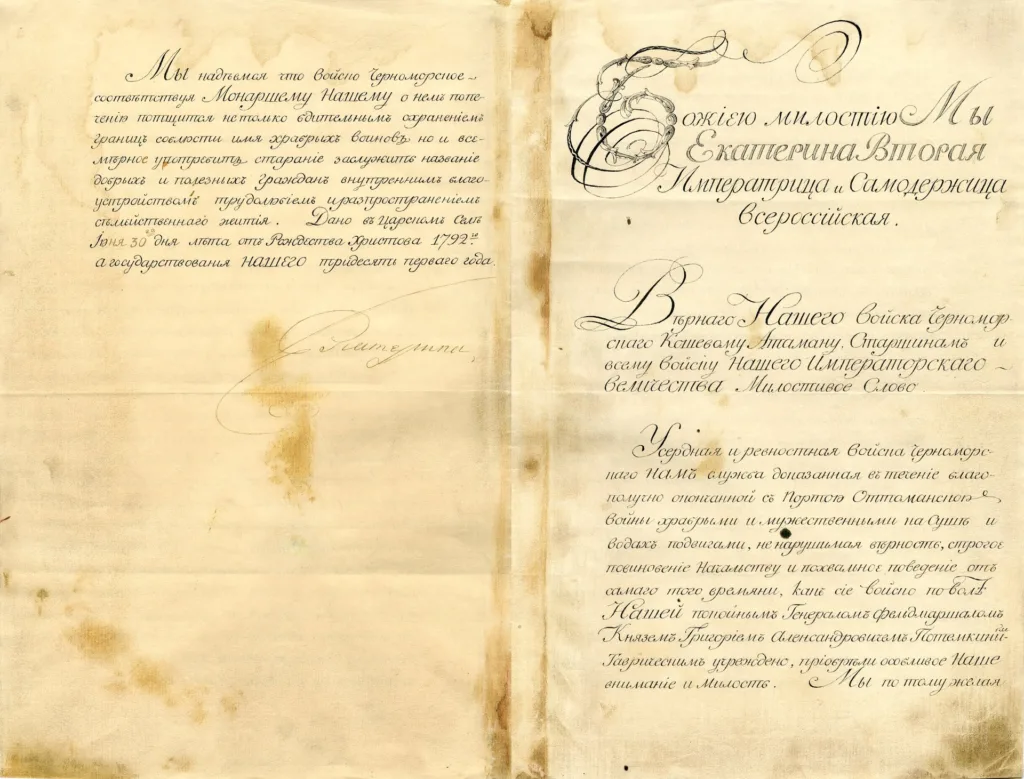 Мы надѣемся что войско Черноморское
соотвѣтствуя Монаршему Нашему о немъ попе-
ченію потщится не только бдительнымъ охраненіемъ
границъ соблюсти имя храбрыхъ воиновъ но и все-
мѣрное употребитъ стараніе заслужить названіе
добрыхъ и полезныхъ гражданъ внутреннимъ благо-
устройствомъ трудолюбіемъ и распространеніемъ
сѣмейственнаго житія. Дано въ Царскомъ Селѣ
Іюня 30го дня лѣта отъ Рождества Христова 1792го
а государствования НАШЕГО тридесять перваго года.
Екатерина
Божіею милостію Мы
Екатерина Вторая
Императрица и Самодержица
Всероссійская.
Вѣрнаго Нашего войска Черномор
скаго Кошевому Атаману, Старшинам и
всему войску Нашего Императорскаго
величества Милостивое Слово.
Усердная и ревностная войска Черномор-
скаго НАМЪ служба доказанная въ теченіе благо-
получно оконченной съ Портою Оттоманскою
войны храбрыми и мужественными на Сушѣ и
водахъ подвигами, не нарушимая вѣрность, строгое
повиновеніе Начальству и похвалное поведеніе отъ
самаго того времяни, какъ сіе войско по волѣ
Нашей покойнымъ Генераломъ фельдмаршаломъ
Княземъ Григоріемъ Александровичемъ Потемкинымъ
Таврическимъ учреждено, пріобрѣли особливое Наше
вниманіе и Милость. Мы по тому желая